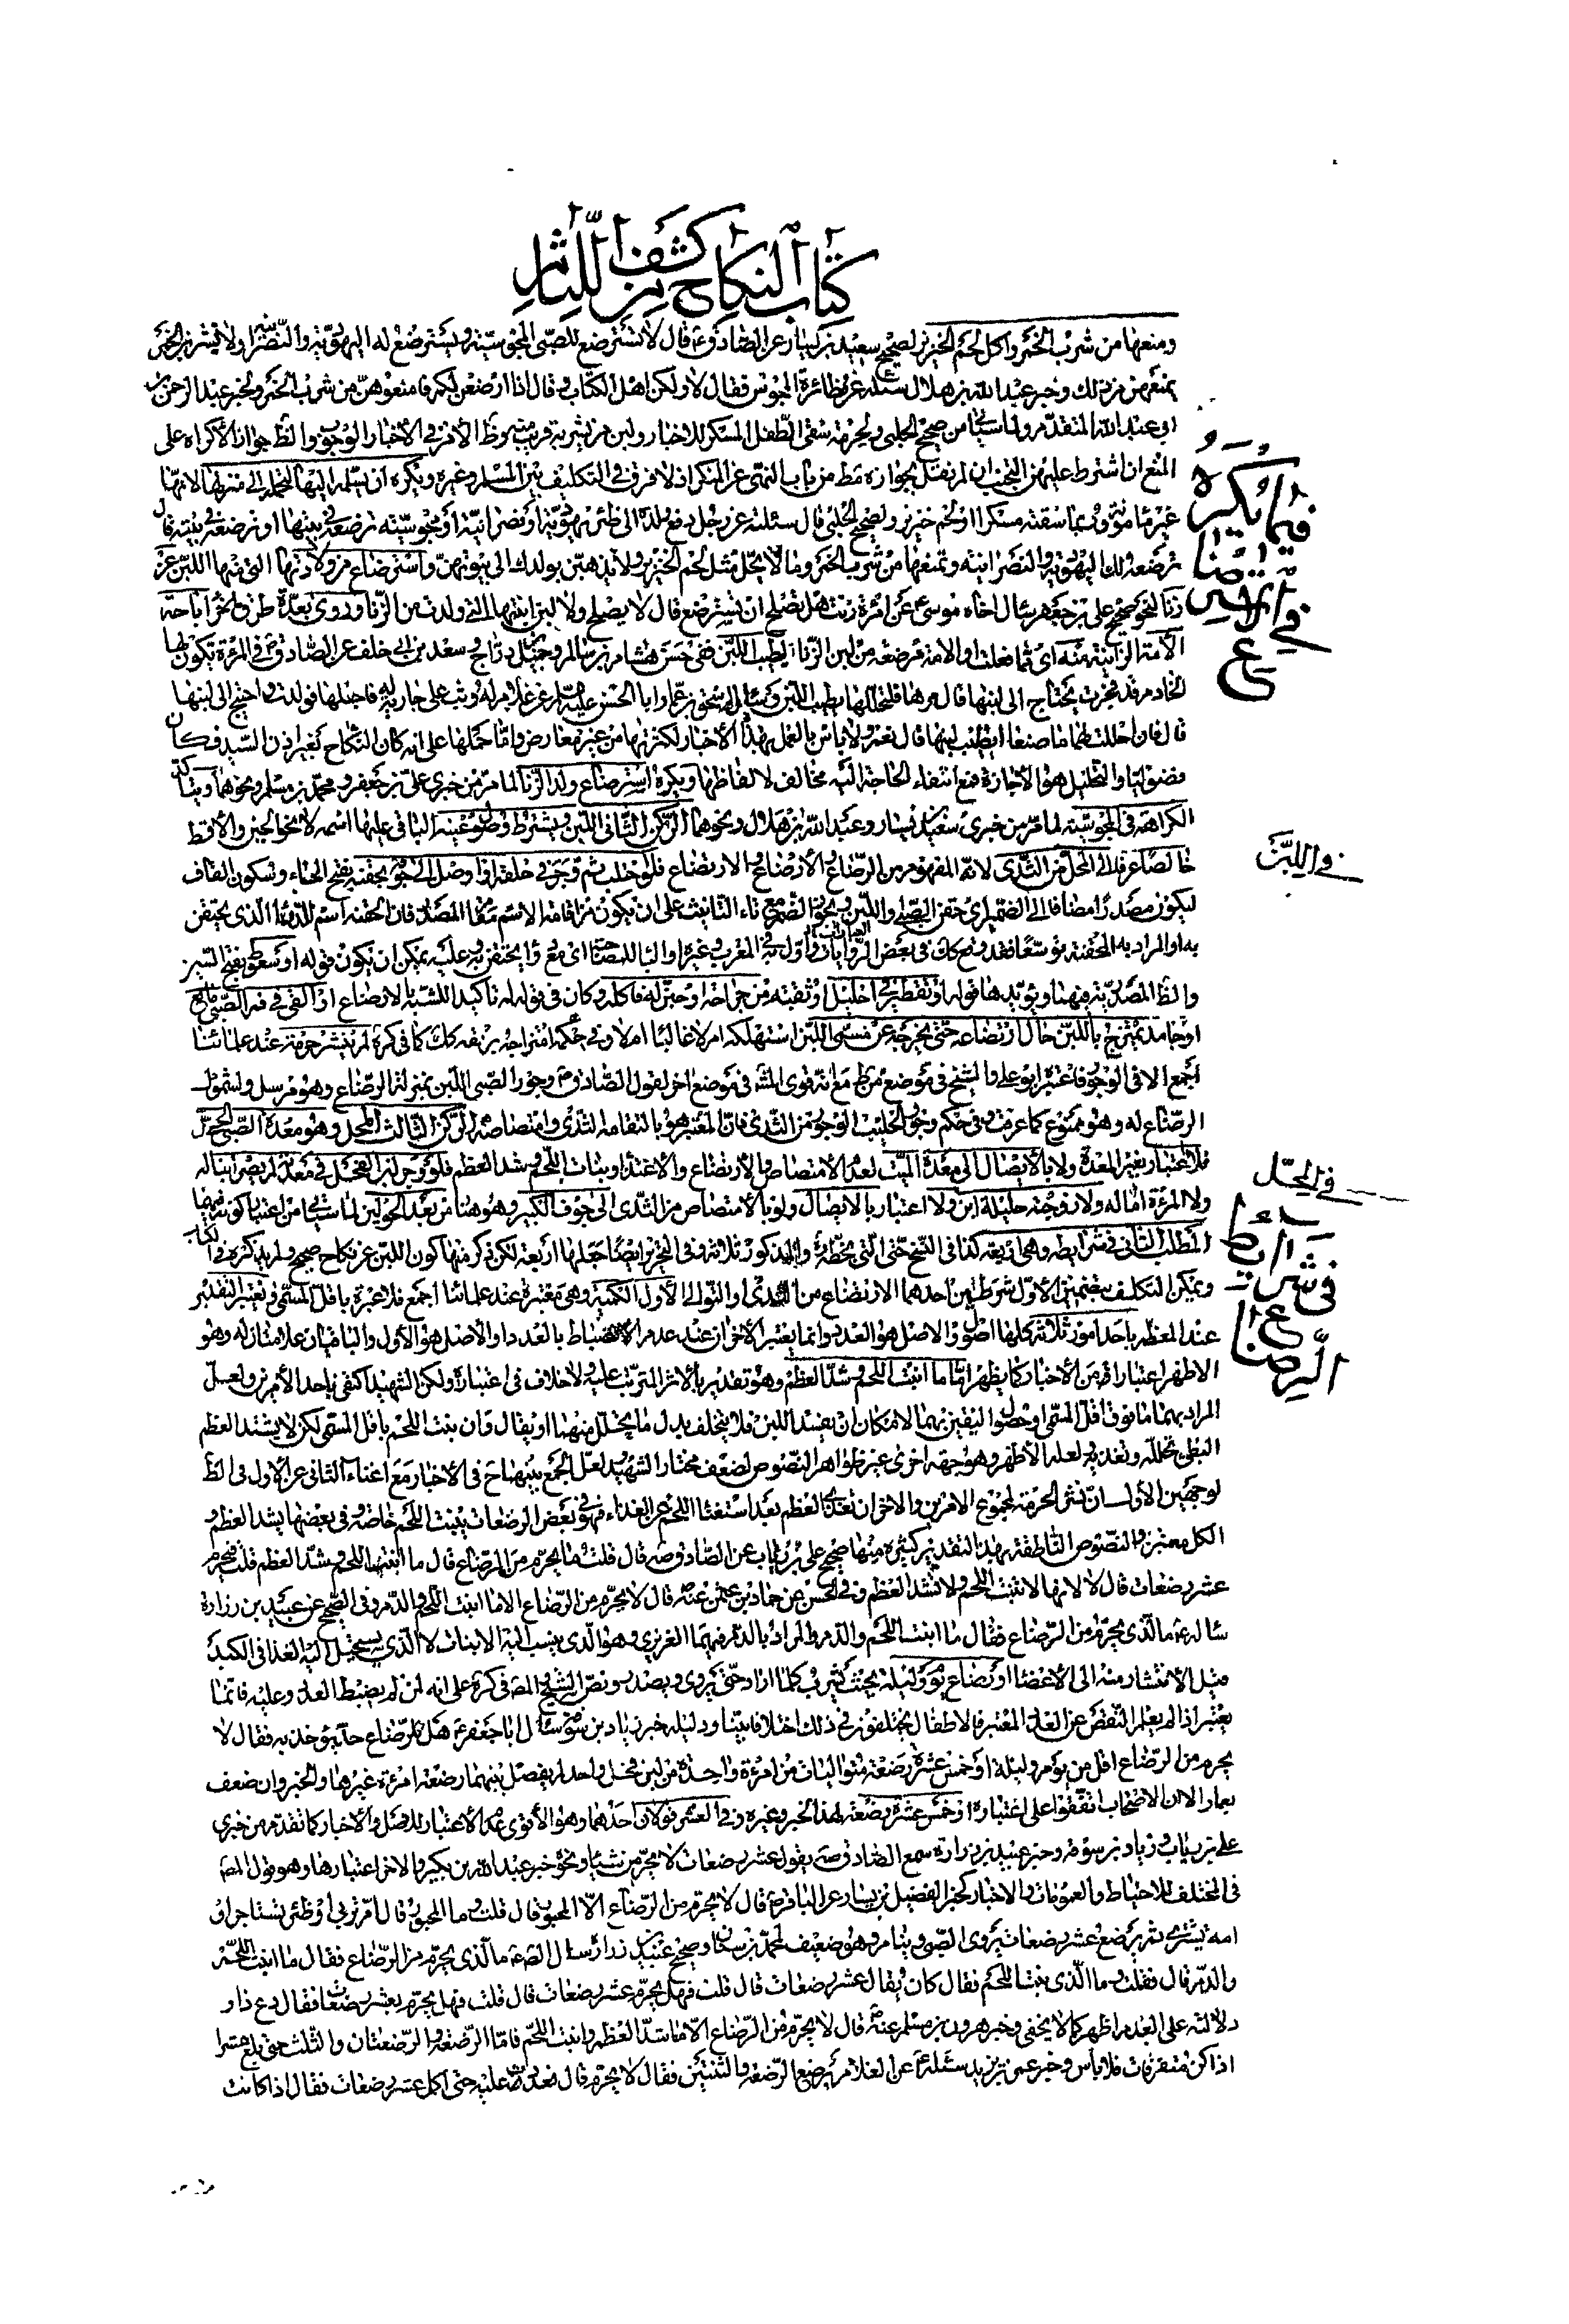 كتاب النكاح من كشف اللثام
ومنعها من شرب الخمر واكل لحم الخنزير لصحيح سعيد بن يسار عن الصادق ع قال لا تسترضع للصبى المجوسية ويسترضع له اليهودية والنصرانية ولا يشربن الخمر
يمنعهن من ذلك وخبر عبد الله بن هلال سئله عن مظائرة المجوس فقال لا ولكن اهل الكتاب وقال اذا ارضعن لكم فامنعوهن من شرب الخمر ولخبر عبد الرحمن بن
ابى عبد الله المتقدم ولما سياتى من صحيح الحلبى ولحرمة سقى الطفل المسكر للاخبار ولبن من تشربه قريب منه وظ الامر فى الاخبار الوجوب والظ جواز الاكراه على
المنع ان اشترط عليهن التجنب ان لم نقل بجوازه مط من باب النهى عن المنكر اذ لا فرق فى التكليف بين المسلم وغيره ويكره ان يسلم اليها لتحمله الى منزلها لانها
غير مامونة وربما سقته مسكرا او لحم خنزير ولصحيح الحلبى قال سئلته عن رجل دفع ولده الى ظئر يهودية او نصرانية او مجوسية ترضعه فى بيتها او ترضعه فى بيته قال
ترضعه لك اليهودية والنصرانية وتمنعها من شرب الخمر وما لا يحل مثل لحم الخنزير ولا يذهبن بولدك الى بيوتهن واسترضاع من ولادتها التى منها اللبن عن
زنا لنحو صحيح على بن جعفر سال اخاه موسى ع عن امرئة زنت هل تصلح ان تسترضع قال لا يصلح ولا لبن ابنتها التى ولدت من الزنا وروى بعدة طرق اخر اباحة
الامة الزانية منه اى مما فعلت او الامة مرضعة من لبن الزنا ليطيب اللبن ففى حسن هشام بن سالم وجميل بن دراج وسعد بن ابى خلف عن الصادق ع فى المرئة تكون لها
الخادم قد فجرت يحتاج الى لبنها قال مرها فلتحللها يطيب اللبن وسال اسحق بن عمار ابا الحسن عليه السلام عن غلام له وثب على جارية له فاحبلها فولدت واحتيج الى لبنها
قال فان احللت لهما ما صنعا ايطيب لبنها قال نعم ولا باس بالعمل بهذه الاخبار لكثرتها من غير معارض واما حملها على انه كان النكاح بغير اذن السيد فكان
فضوليا والتحليل هو الاجازة فمع انتفاء الحاجة اليه مخالف لالفاظها ويكره استرضاع ولد الزنا لما مر من خبرى على بن جعفر ومحمد بن مسلم ونحوهما ويتاكد
الكراهة فى المجوسية لما مر من خبرى سعيد بن يسار وعبد الله بن هلال ونحوهما الركن الثانى اللبن ويشترط وصول عينه الباقى عليها اسمه لا نحو الجبن والاقط
خالصا غير الى المحل من الثدى لانه المفهوم من الرضاع والارضاع والارتضاع فلو حلب ثم وجر فى حلقه او اوصل الى جوفه بحقنة بفتح الحاء وسكون القاف
ليكون مصدرا مضافا الى الضمير اى حقن الصبى واللبن ويجوز الضم مع تاء التانيث على ان يكون من اقامة الاسم مقام المصدر فان الحقنة اسم للدواء الذى يحتقن
به او المراد به المحقنة توسعا فقد وقع كك فى بعض الروايات واول به فى المغرب وغيره او الباء للمصاحبة اى مع ما يحتقن به وعليه يمكن ان يكون قوله او سعوط بفتح السين
والظ المصدرية فيهما ويؤيدها قوله او تقطير فى احليل او ثقبة من جراحة او جبن له فاكله وكان فى قوله له تاكيد للشبه بالارتضاع او القى فى فم الصبى مايع
او جامد يمتزج باللبن حال ارتضاعه حتى يخرجه عن مسمى اللبن استهلكه ام لا غالبا ام لا وفى حكمه امتزاجه بريقه كك كما فى كره لم ينشر حرمة عند علمائنا
اجمع الا فى الوجور فاعتبره ابو على والشيخ فى موضع من ط مع انه قوى المش فى موضع اخر لقول الصادق ع وجور الصبى اللبن بمنزلة الرضاع وهو مرسل ولشمول
الرضاع له وهو ممنوع كما عرفت وفى حكم وجور الحليب الوجور من الثدى فان المعتبر هو بالتقامه الثدى وامتصاصه الركن الثالث المحل وهو معدة الصبى الحى
فلا اعتبار بغير المعدة ولا بالايصال الى معدة الميت لعدم الامتصاص والارتضاع والاغتذاء ونبات اللحم وشد العظم فلو وجر لبن الفحل فى معدته لم يصر ابنا له
ولا المرئة اما له ولا زوجته حليلة ابن ولا اعتبار بالايصال ولو بالامتصاص من الثدى الى جوف الكبير وهو هنا من بعد الحولين لما سياتى من اعتبار كونه فيهما
المطلب الثانى فى شرايطه وهى اربعة كذا فى النسخ حتى التى بخطه ره والمذكور ثلاثة وفى التحرير ايضا جعلها اربعة لكن ذكر منها كون اللبن عن نكاح صحيح ولم يذكره فى الكتاب
ويمكن التكلف بتضمين الاول شرطين احدهما الارتضاع من الثدى او التوالى الاول الكمية وهى معتبرة عند علمائنا اجمع فلا عبرة باقل المسمى ويعتبر التقدير
عند المعظم باحد امور ثلاثة كلها اصول والاصل هو العدد وانما يعتبر الاخران عند عدم الانضباط بالعدد او الاصل هو الاول والباقيان علامتان له وهو
الاظهر اعتبارا ومن الاخبار كما يظهر اما ما انبت اللحم وشد العظم وهو تقدير بالاثر المترتب عليه ولا خلاف فى اعتباره ولكن الشهيد اكتفى باحد الامرين ولعل
المراد بهما ما فوق اقل المسمى او حصول اليقين بهما لامكان ان يفسد اللبن فلا يتخلف بدل ما يتحلل منهما او يقال وان ينبت اللحم باقل المسمى لكن لا يشتد العظم
البطى تحلله وتغذيه ولعله الاظهر وهو جهة اخرى غير ظواهر النصوص لضعف مختار الشهيد ولعل الجمع بينهما ح فى الاخبار مع اغناء الثانى عن الاول فى الظ
لوجهين الاول ان نشر الحرمة لمجموع الامرين والاخر ان تغذى العظم بعد استغناء اللحم عن الغذاء فهو فى بعض الرضعات ينبت اللحم خاصة وفى بعضها يشد العظم و
الكل معتبر والنصوص الناطقة بهذا التقدير كثيرة منها صحيح على بن رئاب عن الصادق ص قال قلت ما يحرم من الرضاع قال ما انبت اللحم وشد العظم قلت فيحرم
عشر رضعات قال لا لانها لا تنبت اللحم ولا تشد العظم وفى الحسن عن حماد بن عثمن عنه ص قال لا يحرم من الرضاع الا ما انبت اللحم والدم وفى الصحيح عن عبيد بن زرارة
ساله ع ما الذى يحرم من الرضاع فقال ما انبت اللحم والدم والمراد بالدم فيهما الغريزى وهو الذى ينسب اليه الانبات لا الذى يستحيل اليه الغذا فى الكبد
قبل الانتشار منه الى الاعضا او رضاع يوم وليلة بحيث يشرب كلما اراد حتى يروى ويصدر ونص الشيخ والمص فى كره على انه لمن لم يضبط العدد وعليه فانما
يعتبر اذا لم يعلم النقص عن العدد المعتبر فالاطفال يختلفون فى ذلك اختلافا بينا ودليله خبر زياد بن سوقة سال ابا جعفر ع هل للرضاع حد يؤخذ به فقال لا
يحرم من الرضاع اقل من يوم وليلة او خمس عشرة رضعة متواليات من امرئة واحدة من لبن فحل واحد لم يفصل بينهما رضعة امرئة غيرها والخبر وان ضعف
بعمار الا ان الاصحاب اتفقوا على اعتباره او خمس عشرة رضعة لهذا الخبر وغيره وفى العشر قولان احدهما وهو الاقوى عدم الاعتبار للاصل والاخبار كما تقدم من خبرى
على بن رئاب وزياد بن سوقة وخبر عبيد بن زرارة سمع الصادق ص يقول عشر رضعات لا يحرمن شيئا ونحو خبر عبد الله بن بكير والاخر اعتبارها وهو قول المص
فى المختلف للاحتياط والعمومات والاخبار كخبر الفضيل بن يسار عن الباقر ع قال لا يحرم من الرضاع الا المجبور قال قلت وما المجبور قال ام تربى او ظئر تستاجر او
امة تشترى ثم يرضع عشر رضعات يروى الصبى وينام وهو ضعيف لمحمد بن سنان وصحيح عبيد بن زرارة سال الص ع ما الذى يحرم من الرضاع فقال ما انبت اللحم
والدم قال فقلت وما الذى ينبت اللحم فقال كان يقال عشر رضعات قال قلت فهل يحرم عشر رضعات قال قلت فهل يحرم بعشر رضعات فقال دع ذا و
دلالته على العدم اظهر كما لا يخفى وخبر هرون بن مسلم عنه ص قال لا يحرم من الرضاع الا ما شد العظم وانبت اللحم فاما الرضعة والرضعتان والثلث حتى بلغ عشرا
اذا كن متفرقات فلا باس وخبر عمر بن يزيد سئله ع عن الغلام يرضع الرضعة والثنتين فقال لا يحرم قال فعددت عليه حتى اكمل عشر رضعات فقال اذا كانت
فيما يكره
ايضا
فى الاسترضاع
فى اللبن
فى المحل
فى شرايط
الرضاع